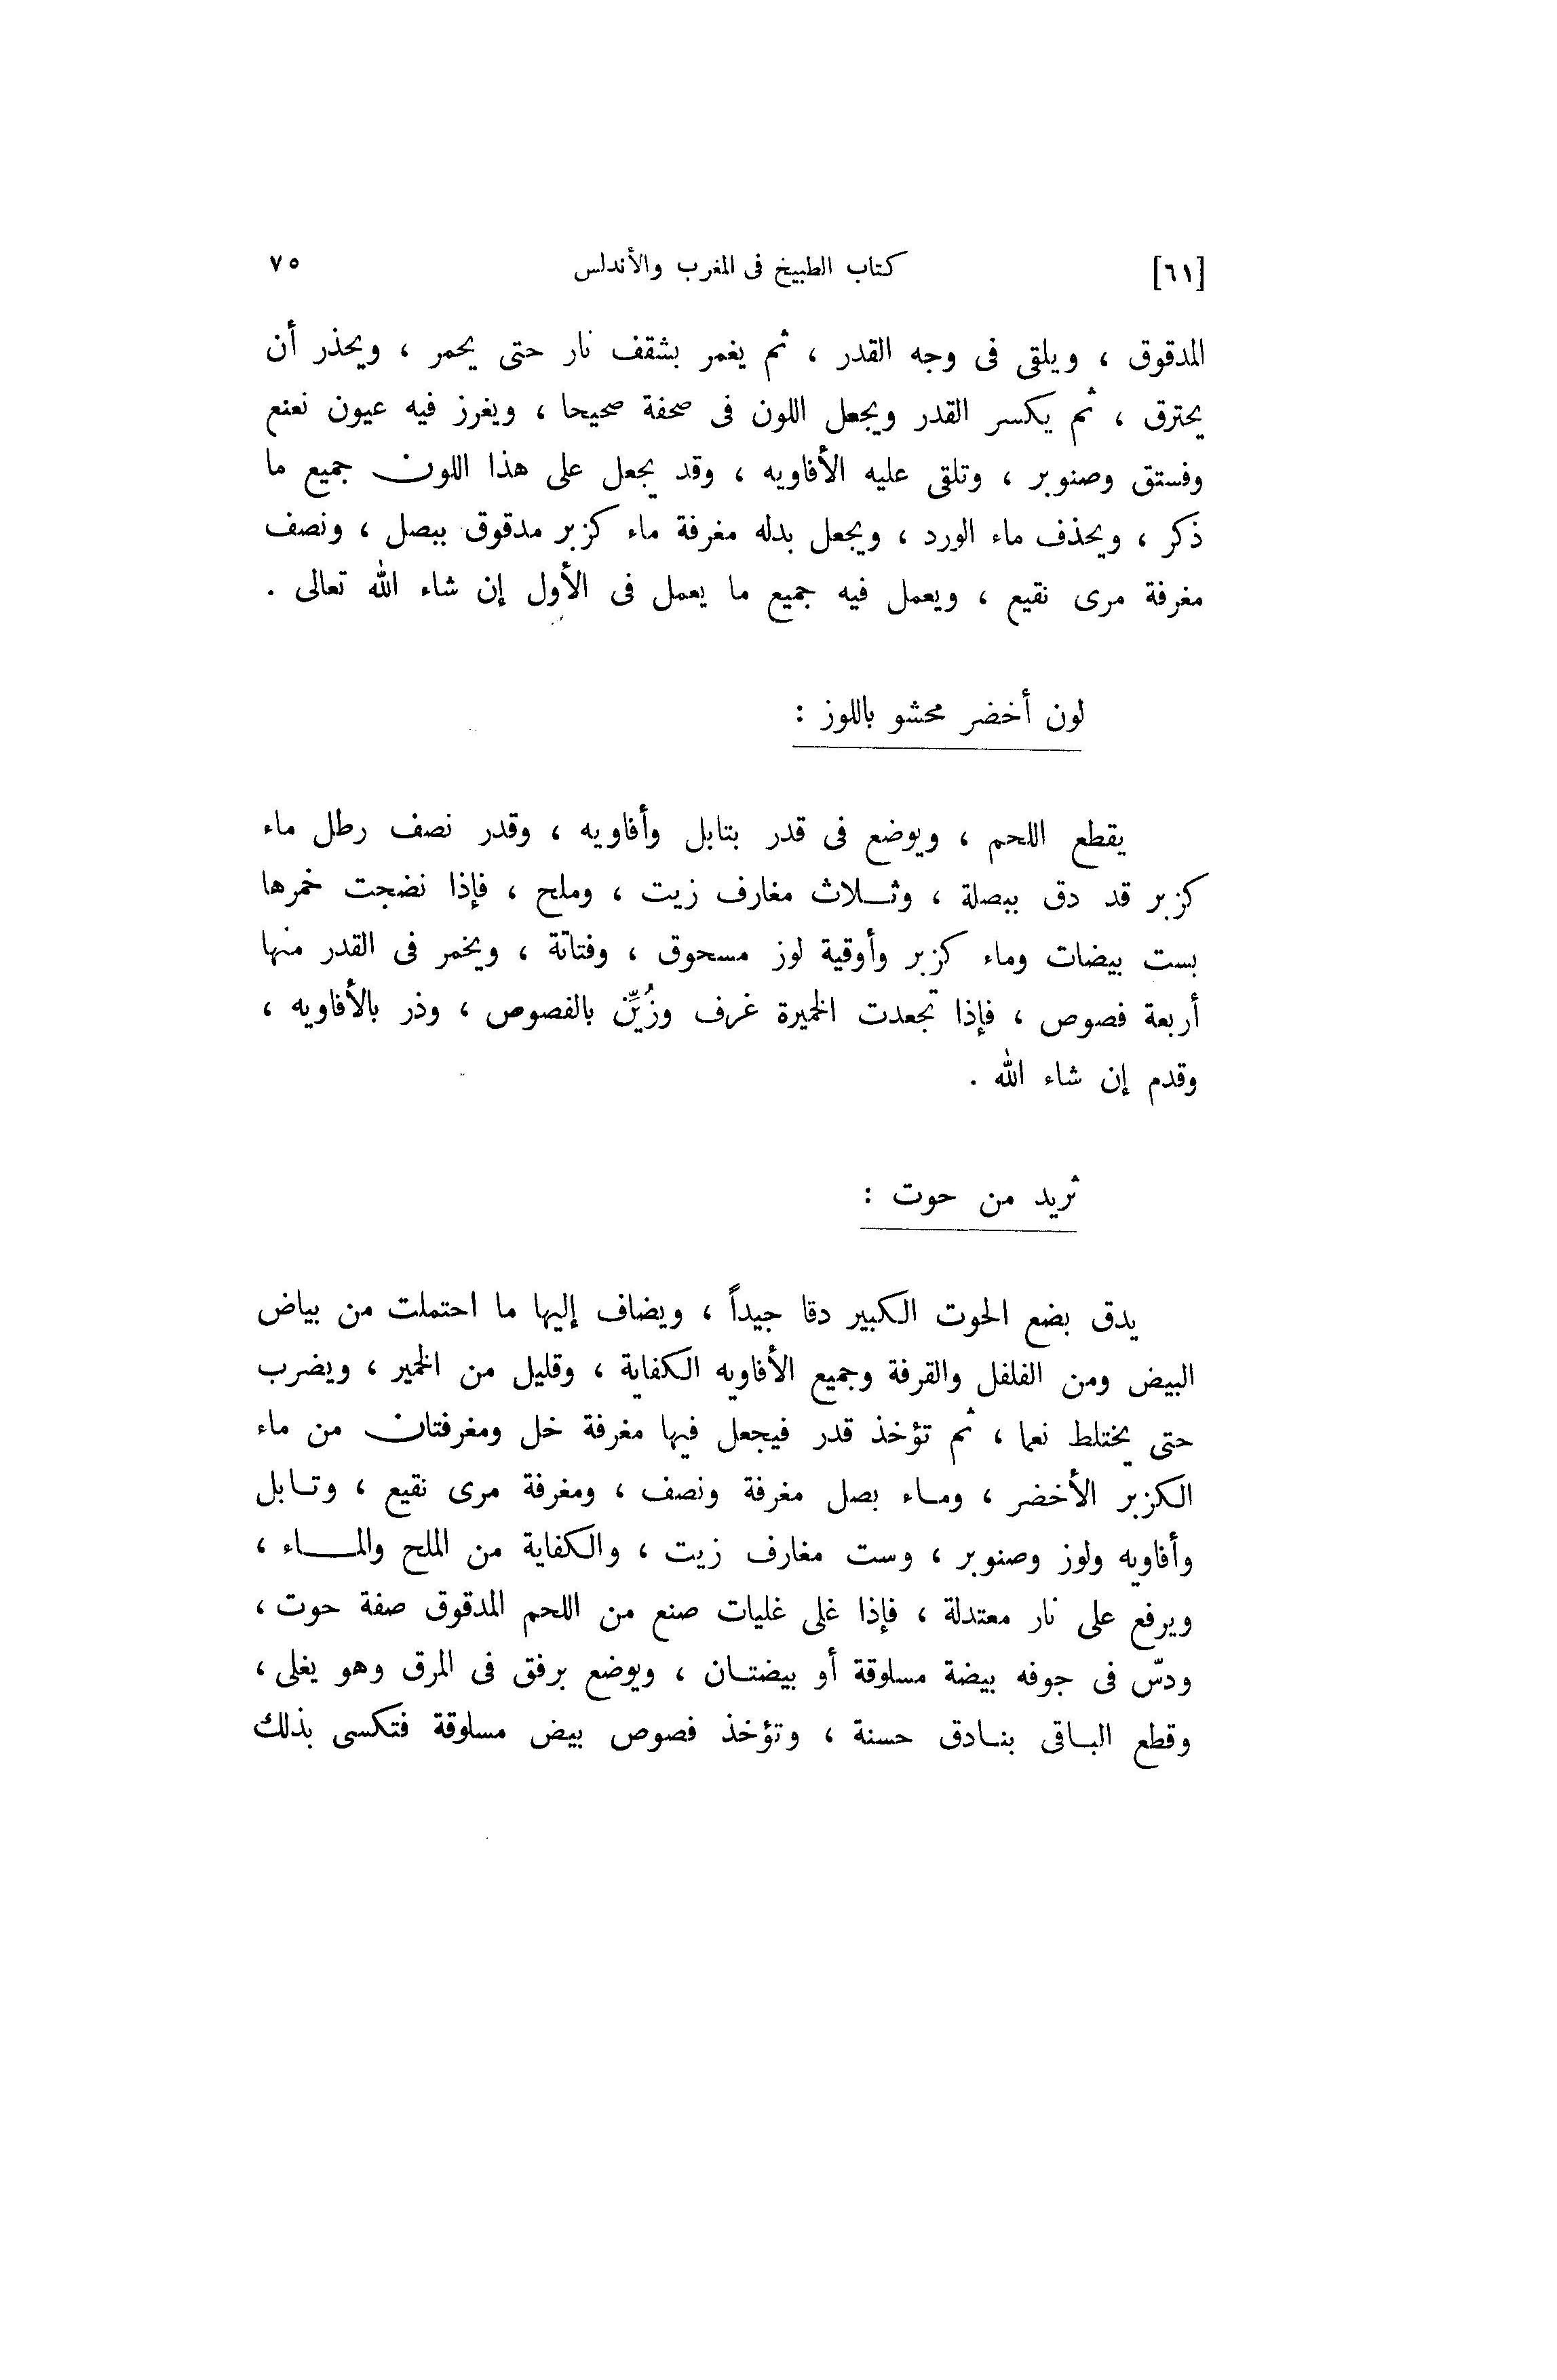 [٦١] كتاب الطبيخ فى المغرب والأندلس ٧٥
المدقوق ، ويلقى فى وجه القدر ، ثم يغمر بشقف نار حتى يحمر ، ويحذر أن
يحترق ، ثم يكسر القدر ويجعل اللون فى صحفة صحيحا ، ويغرز فيه عيون نعنع
وفستق وصنوبر ، وتلقى عليه الأفاويه ، وقد يجعل على هذا اللون جميع ما
ذكر ، ويحذف ماء الورد ، ويجعل بدله مغرفة ماء كزبر مدقوق ببصل ، ونصف
مغرفة مرى نقيع ، ويعمل فيه جميع ما يعمل فى الأول إن شاء الله تعالى .
لون أخضر محشو باللوز :
يقطع اللحم ، ويوضع فى قدر بتابل وأفاويه ، وقدر نصف رطل ماء
كزبر قد دق ببصلة ، وثلاث مغارف زيت ، وملح ، فإذا نضجت خمرها
بست بيضات وماء كزبر وأوقية لوز مسحوق ، وفتاتة ، ويخمر فى القدر منها
أربعة فصوص ، فإذا تجعدت الخميرة غرف وزُيِّن بالفصوص ، وذر بالأفاويه ،
وقدم إن شاء الله .
ثريد من حوت :
يدق بضع الحوت الكبير دقا جيداً ، ويضاف إليها ما احتملت من بياض
البيض ومن الفلفل والقرفة وجميع الأفاويه الكفاية ، وقليل من الخمير ، ويضرب
حتى يختلط نعما ، ثم تؤخذ قدر فيجعل فيها مغرفة خل ومغرفتان من ماء
الكزبر الأخضر ، وماء بصل مغرفة ونصف ، ومغرفة مرى نقيع ، وتابل
وأفاويه ولوز وصنوبر ، وست مغارف زيت ، والكفاية من الملح والماء ،
ويرفع على نار معتدلة ، فإذا غلى غليات صنع من اللحم المدقوق صفة حوت ،
ودسّ فى جوفه بيضة مسلوقة أو بيضتان ، ويوضع برفق فى المرق وهو يغلى ،
وقطع الباقى بنادق حسنة ، وتؤخذ فصوص بيض مسلوقة فتكسى بذلك